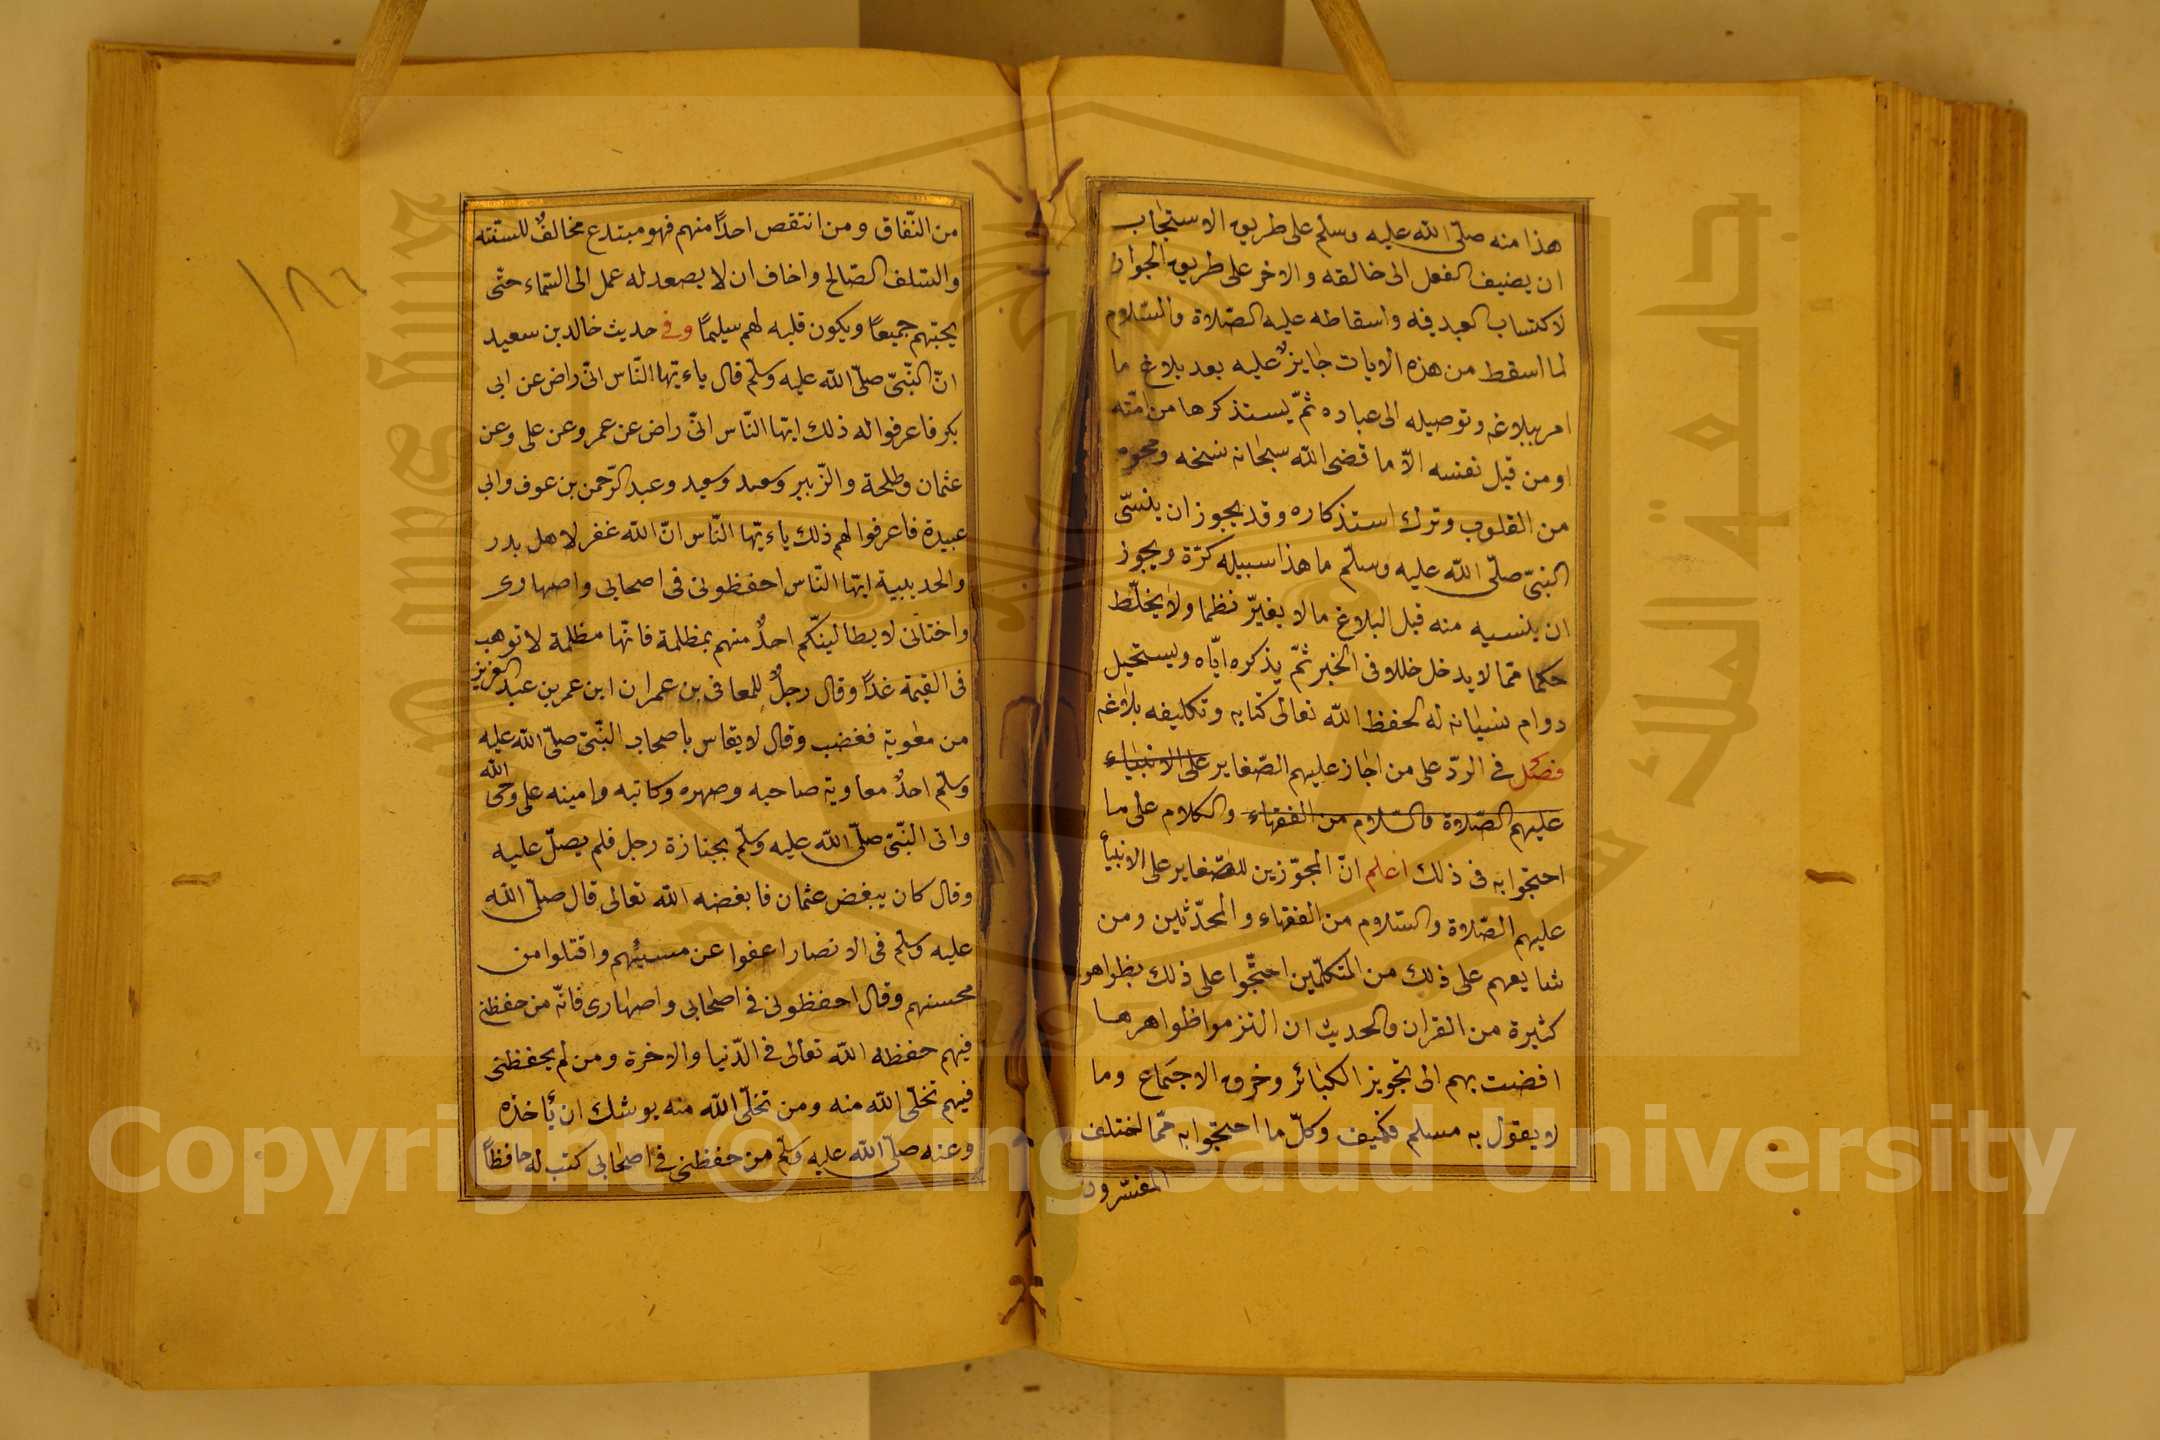 هذا منه صلّى الله عليه وسلّم على طريق الاستحباب
ان يضيف الفعل الى خالقه والاخر على طريق الجواز
لاكتساب العبد فيه واسقاطه عليه الصّلاة والسّلام
لما اسقط من هذه الايات جايزٌ عليه بعد بلاغ ما
امر ببلاغه وتوصيله الى عباده ثمّ يستذكرها من امّته
او من قبل نفسه الّا ما قضى الله سبحانه نسخه ومحوه
من القلوب وترك استذكاره وقد يجوز ان ينسّى
النبىّ صلّى الله عليه وسلّم ما هذا سبيله كرّة ويجوز
ان ينسيه منه قبل البلاغ ما لا يغيّر نظما ولا يخلّط
حكما ممّا لا يدخل خللا فى الخبر ثمّ يذكره ايّاه ويستحيل
دوام نسيانه له لحفظ الله تعالى كتابه وتكليفه بلاغه
فصل فى الردّ على من اجاز عليهم الصّغاير على الانبياء
عليهم الصّلاة والسّلام من الفقهاء والكلام على ما
احتجوا به فى ذلك اعلم انّ المجوّزين للصّغاير على الانبيأ
عليهم الصّلاة والسّلام من الفقهاء والمحدّثين ومن
شايعهم على ذلك من المتكلّمين احتجّوا على ذلك بظواهر
كثيرة من القران والحديث ان التزموا ظواهرها
افضت بهم الى تجويز الكبائر وخرق الاجماع وما
لا يقول به مسلم فكيف وكلّ ما احتجوا به ممّا اختلف
المفسّرون
من النّفاق ومن انتقص احدًا منهم فهو مبتدع مخالفٌ للسنّته
والسّلف الصّالح واخاف ان لا يصعد له عمل الى السّماء حتّى
يحبّهم جميعًا ويكون قلبه لهم سيلمًا وفى حديث خالد بن سعيد
انّ النّبىّ صلّى الله عليه وسلّم قال ياءيّها النّاس انّى راض عن ابى
بكر فاعرفوا له ذلك ايّها النّاس انّى راض عن عمر وعن على وعن
عثمان وطلحة والزّبير وسعد وسعيد وعبد الرّحمن بن عوف وابى
عبيدة فاعرفوا لهم ذلك ياءيّها النّاس انّ الله غفر لاهل بدر
والحديبية ايّها النّاس احفظونى فى اصحابى واصهارى
واختانى لا يطالبنّكم احدٌ منهم بمظلمة فانّها مظلمة لا توهب
فى القيمة غدًا وقال رجلٌ للمعافى بن عمران اين عمر بن عبد العزيز
من معٰوية فغضب وقال لا يقاس باصحاب النّبىّ صلّى الله عليه
وسلّم احدٌ معاوية صاحبه وصهره وكاتبه وامينه على وحى الله
واتى النّبىّ صلّى الله عليه وسلّم بجنازة رجل فلم يصلّ عليه
وقال كان يبغض عثمان فابغضه الله تعالى قال صلّى الله
عليه وسلّم فى الانصار اعفوا عن مسيئهم واقتلوا من
محسنهم وقال احفظونى فى اصحابى واصهارى فانّه من حفظنى
فيهم حفظه الله تعالى فى الدّنيا والاخرة ومن لم يحفظنى
فيهم تخلّى الله منه ومن تخلّى الله منه يوشك ان يأخذه
وعنه صلّى الله عليه وسلّم من حفظنى فى اصحابى كتب له حافظًا
١٨٦
جامعة الملك سعود
King Saud University
1957
Copyright © King Saud University